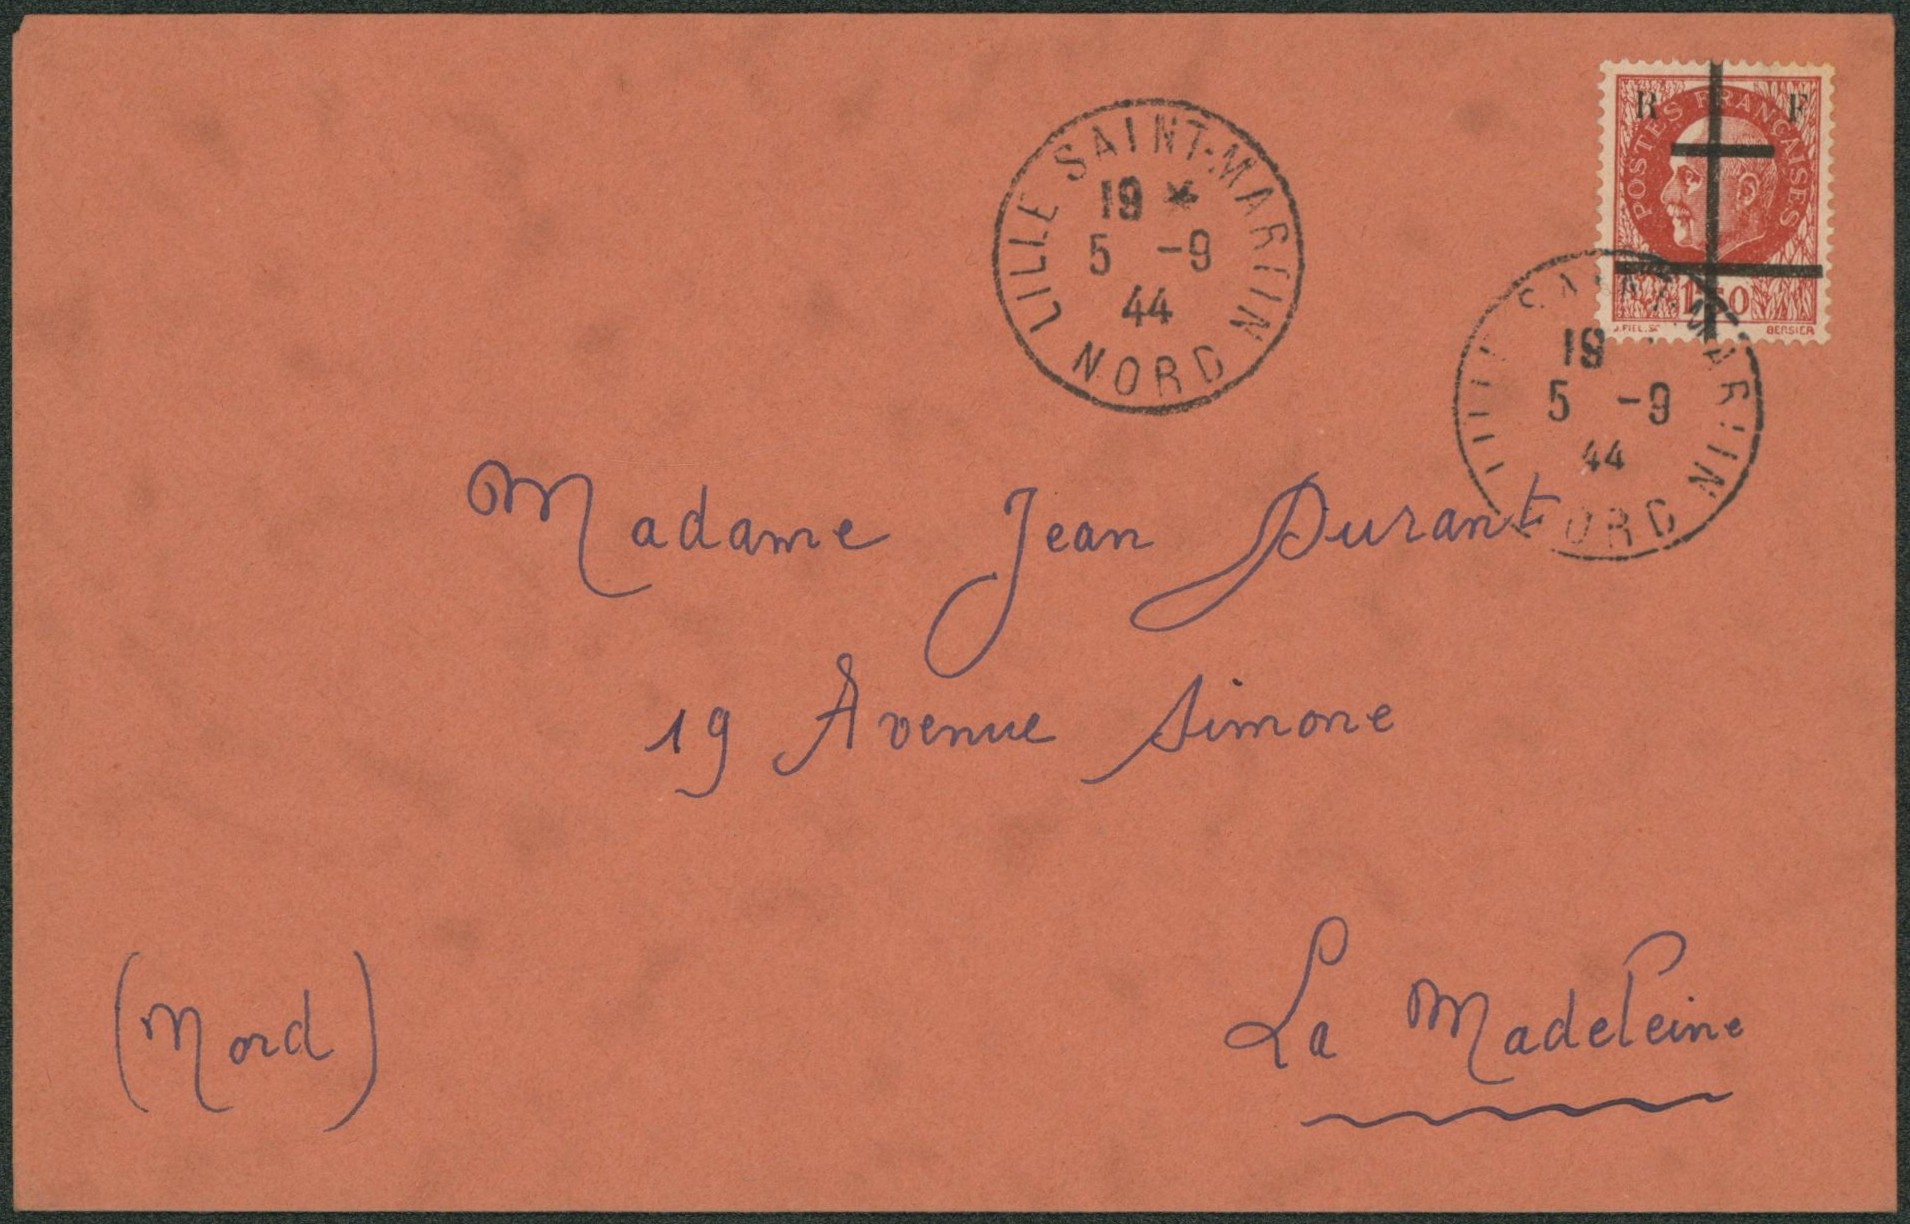 LILLE SAINT-MARTIN
19 *
5 -9
44
NORD
R F
POSTES FRANÇAISES
1F50
J.PIEL.SC BERSIER
LILLE SAINT-MARTIN
19
5 -9
44
NORD
Madame Jean Durant
19 Avenue Simone
La Madeleine
(Nord)